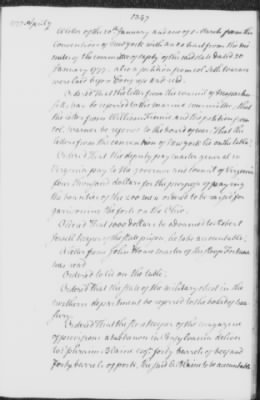 1247
1777 April 9
A letter of the 20th January and one of 1. March from the
Convention of New york with an extract from the mi
nutes of the committee of safety of the said State dated 20
January 1777. also a petition from col. Seth Warner
were laid before Congress and read.
Ordered That the letter from the council of Massachu
setts bay be reported to the marine committee; that
the letter from William Finnie and the petition from
col. Warner be referred to the board of war. That the
letter from the convention of New york lie on the table.
Ordered That the deputy pay master general in
Virginia pay to the governor and council of Virginia
four thousand dollars for the purpose of paying
the bounties of the 200 men ordered to be raised for
garrisoning the forts on the Ohio.
Ordered That 1000 dollars be advanced to Robert
Jewell keeper of the state prison he to be accountable.
A letter from John
was read
Ordered to lie on the table.
Ordered That the state of the military chest in the
northern department be referred to the board of trea
sury.
Ordered That the keeper of the magazine
of provisions at in Pensylvania deliver
to Ephraim Blaine esqr. forty barrels of beef and
forty barrels of pork, the said E. Blaine to be accountable